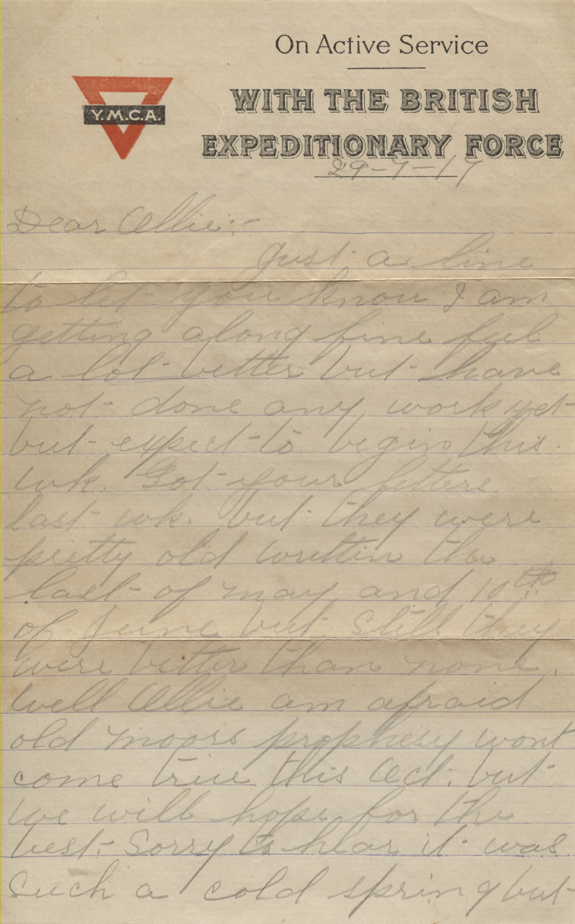 On Active Service
WITH THE BRITISH
Y.M.C.A.
EXPEDITIONARY FORCE
29-7-17
Dear Ollie:-
Just a line
to let you know I am
getting along fine feel
a lot better but have
not done any work yet
but expect to begin this
wk. Got your letters
last wk. but they were
pretty old written the
last of may and 10th
of June but still they
were better than none.
Well Ollie am afraid
old moors prophesy wont
come true this Oct. but
we will hope for the
best. Sorry to hear it was
such a cold spring but